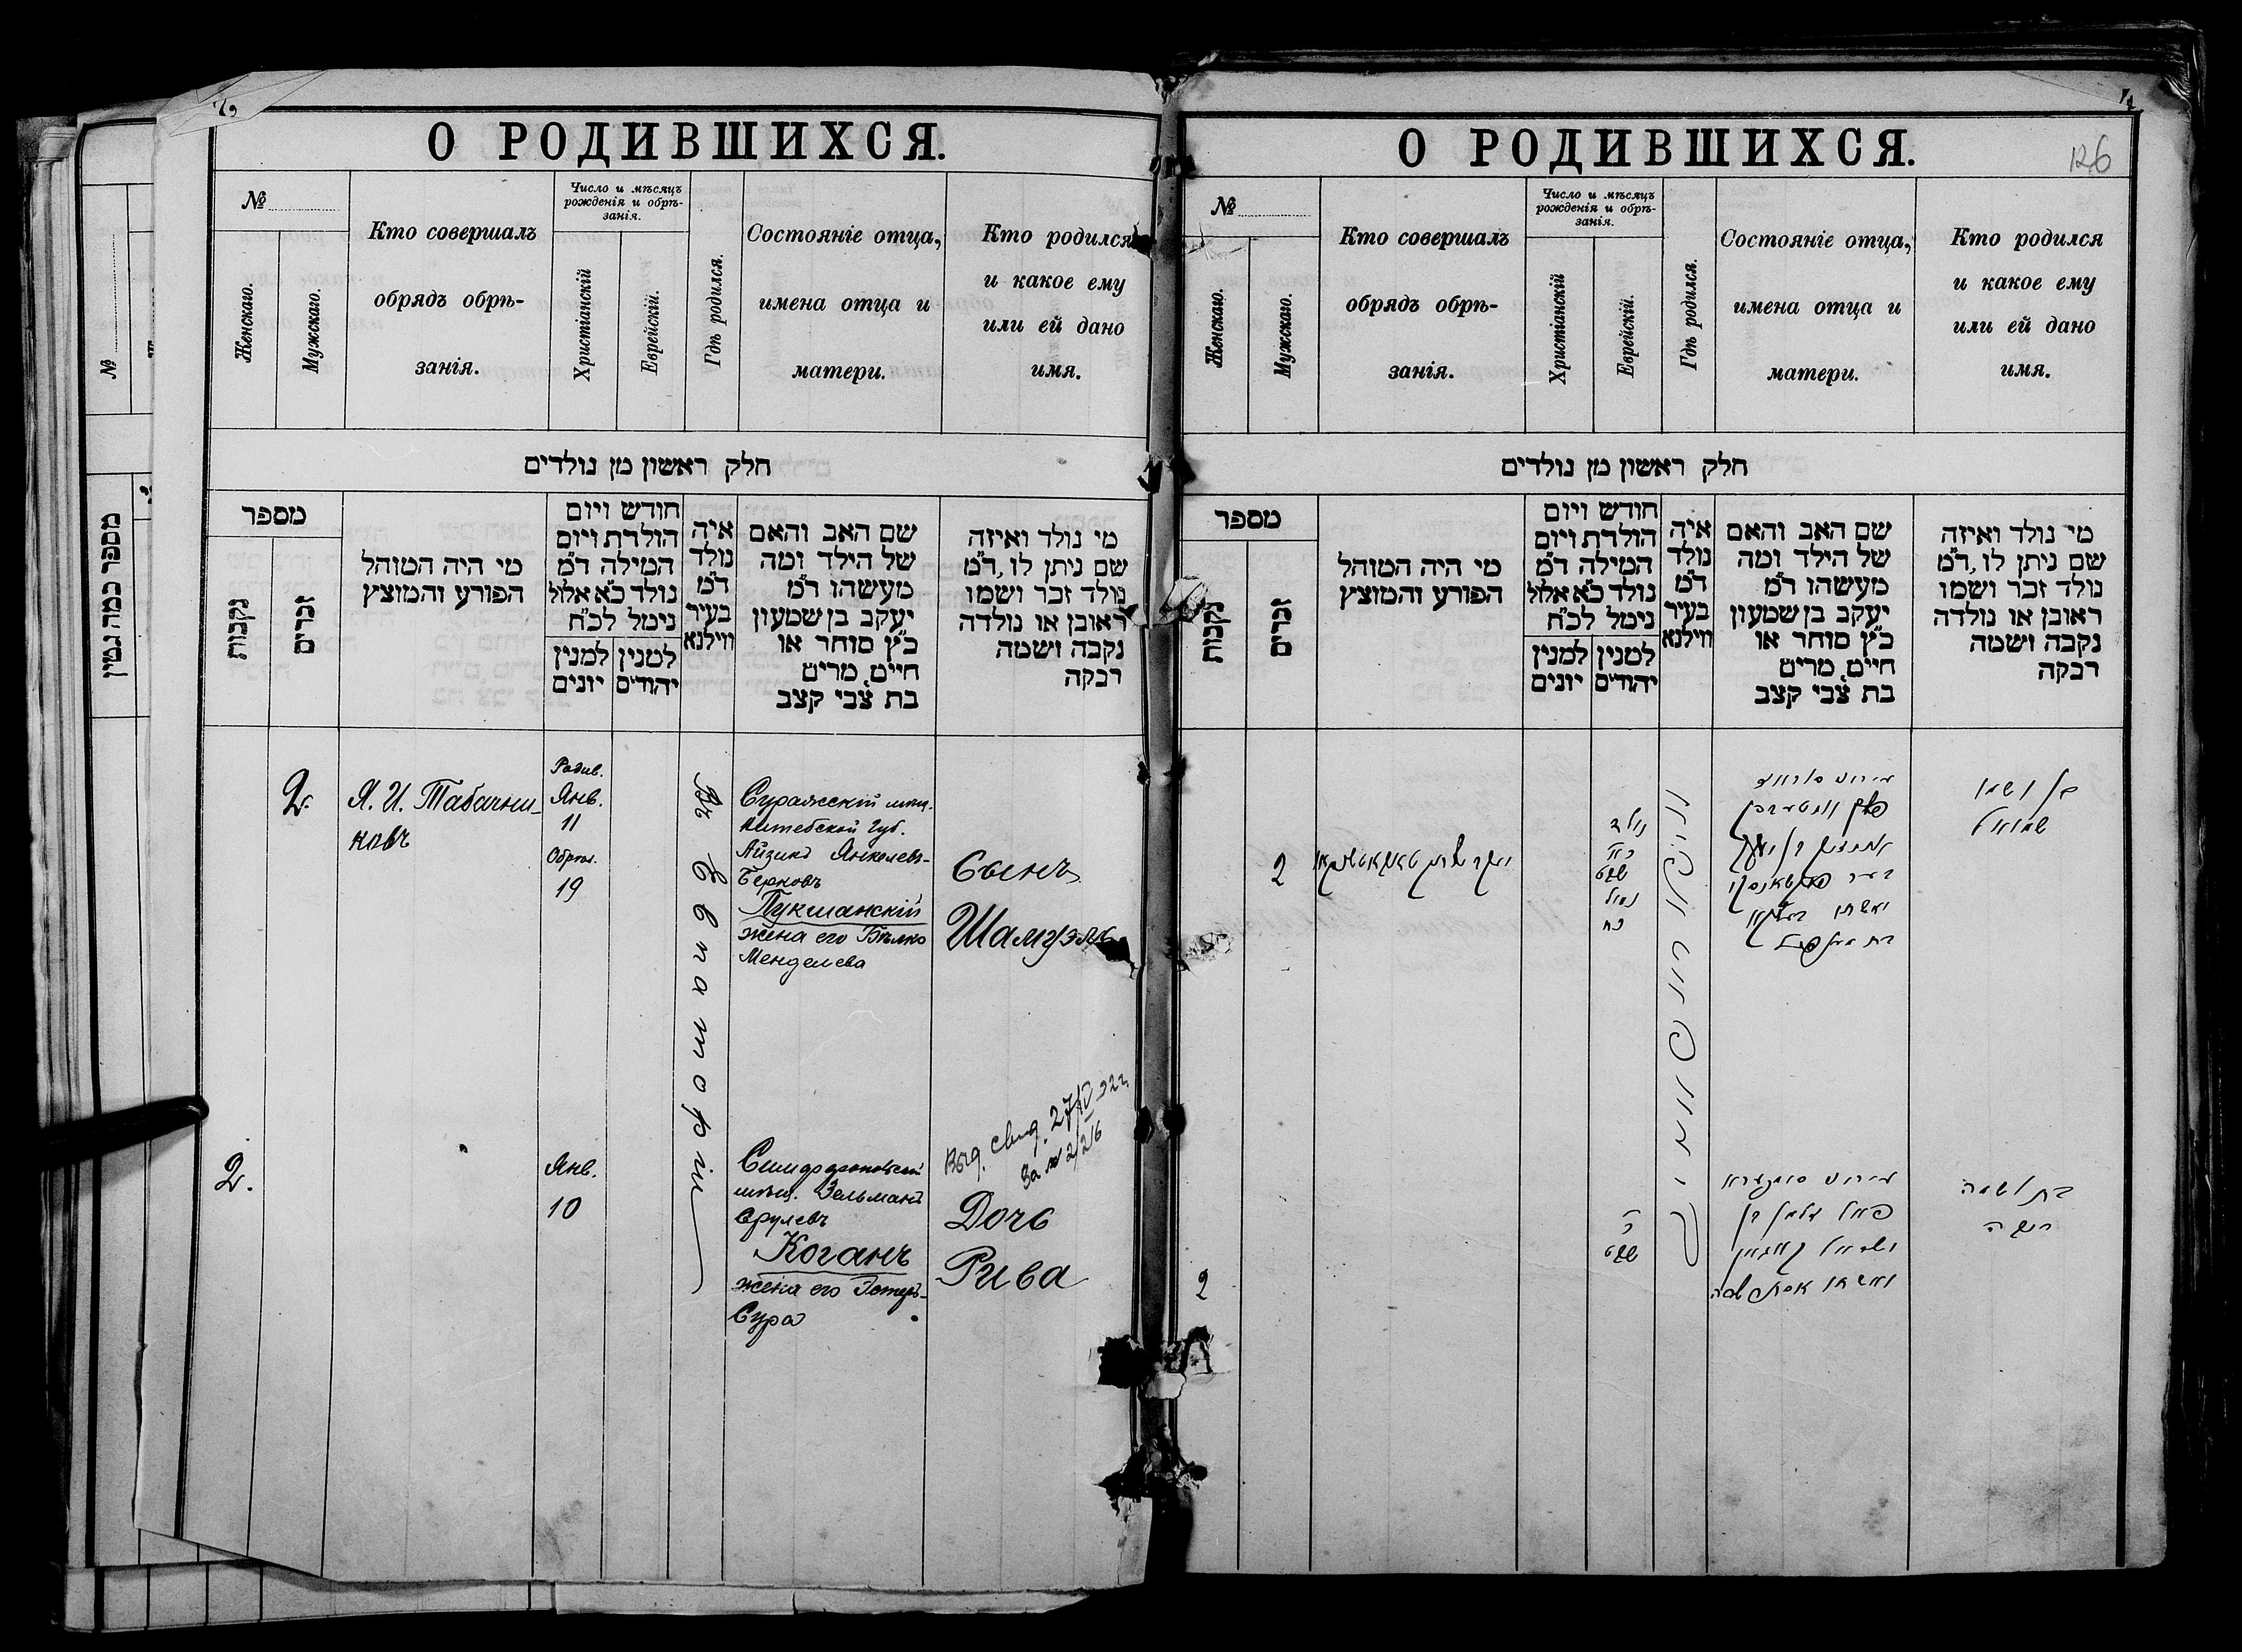 О РОДИВШИХСЯ.
№
Женскаго.
Мужскаго.
Кто совершалъ
обрядъ обрѣ-
занія.
Число и мѣсяцъ
рожденія и обрѣ-
занія.
Христіанскій
Еврейскій.
Гдѣ родился.
Состояніе отца,
имена отца и
матери.
Кто родился
и какое ему
или ей дано
имя.
חלק ראשון מן נולדים
מספר
נקבות
זכרים
מי היה המוהל
הפורע והמוצץ
חודש ויום
הולדת ויום
המילה ד"מ
נולד כ"א אלול
נימל לכ"ח
למנין יונים
למנין יהודים
איה
נולד
ד"מ
בעיר
ווילנא
שם האב והאם
של הילד ומה
מעשהו ד"מ
יעקב בן שמעון
כ"ץ סוחר או
חיים, מרים
בת צבי קצב
מי נולד ואיזה
שם ניתן לו, ד"מ
נולד זכר ושמו
ראובן או נולדה
נקבה ושמה
רבקה
2.
Я. И. Табачни-
ковъ
Родив.
Янв.
11
Обрѣз.
19
Въ Евпаторіи
Суражскій мѣщ.
Витебской Губ.
Айзикъ Янкелевъ-
Берковъ
Пукшанскій
жена его Бѣлка
Менделева
Сынъ
Шамуэль
2.
Янв.
10
Симферопольскій
мѣщ. Зельманъ
Срулевъ
Коганъ
жена его Эстеръ-
Сура
Выд. свид. 27/IV 32 г.
За № 2/216
Дочь
Рива
О РОДИВШИХСЯ.
126
№
Женскаго.
Мужскаго.
Кто совершалъ
обрядъ обрѣ-
занія.
Число и мѣсяцъ
рожденія и обрѣ-
занія.
Христіанскій
Еврейскій.
Гдѣ родился.
Состояніе отца,
имена отца и
матери.
Кто родился
и какое ему
или ей дано
имя.
חלק ראשון מן נולדים
מספר
נקבות
זכרים
מי היה המוהל
הפורע והמוצץ
חודש ויום
הולדת ויום
המילה ד"מ
נולד כ"א אלול
נימל לכ"ח
למנין יונים
למנין יהודים
איה
נולד
ד"מ
בעיר
ווילנא
שם האב והאם
של הילד ומה
מעשהו ד"מ
יעקב בן שמעון
כ"ץ סוחר או
חיים, מרים
בת צבי קצב
מי נולד ואיזה
שם ניתן לו, ד"מ
נולד זכר ושמו
ראובן או נולדה
נקבה ושמה
רבקה
2
נולד
כא
שבט
נמול
כח
בן ושמו
שמואל
2
כ
שבט
ישראל קאגאן
ואשתו אסתר שרה
בת ושמה